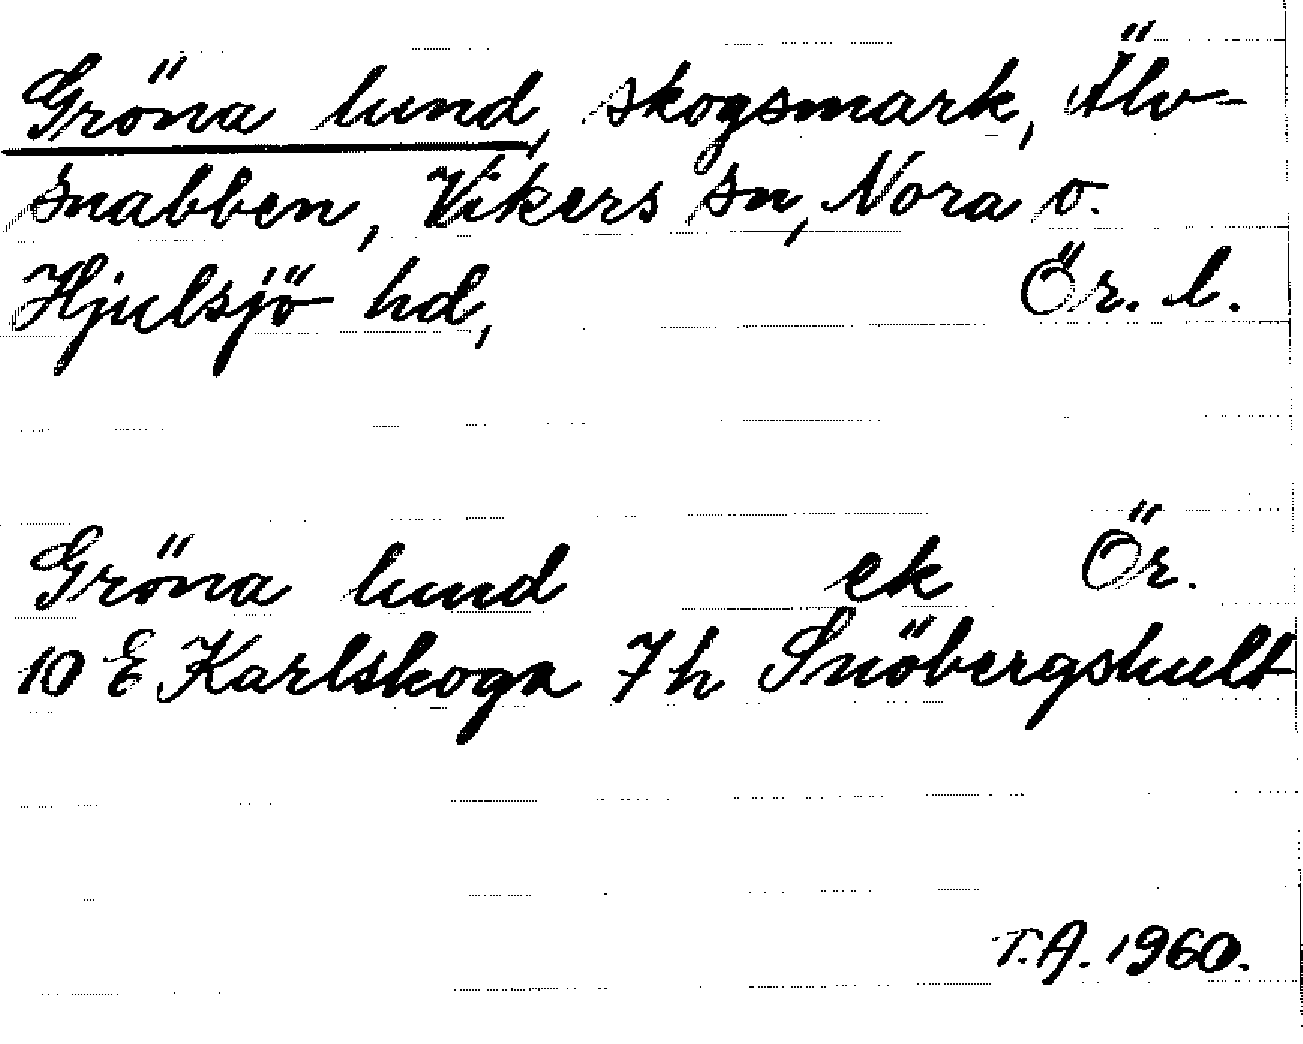 Gröna lund, skogsmark, Älv-
snabben, Vikers sn, Nora o.
Hjulsjö hd, Ör. l.
Gröna lund ek Ör.
10 E Karlskoga 7 h Snöbergshult
T.A. 1960.